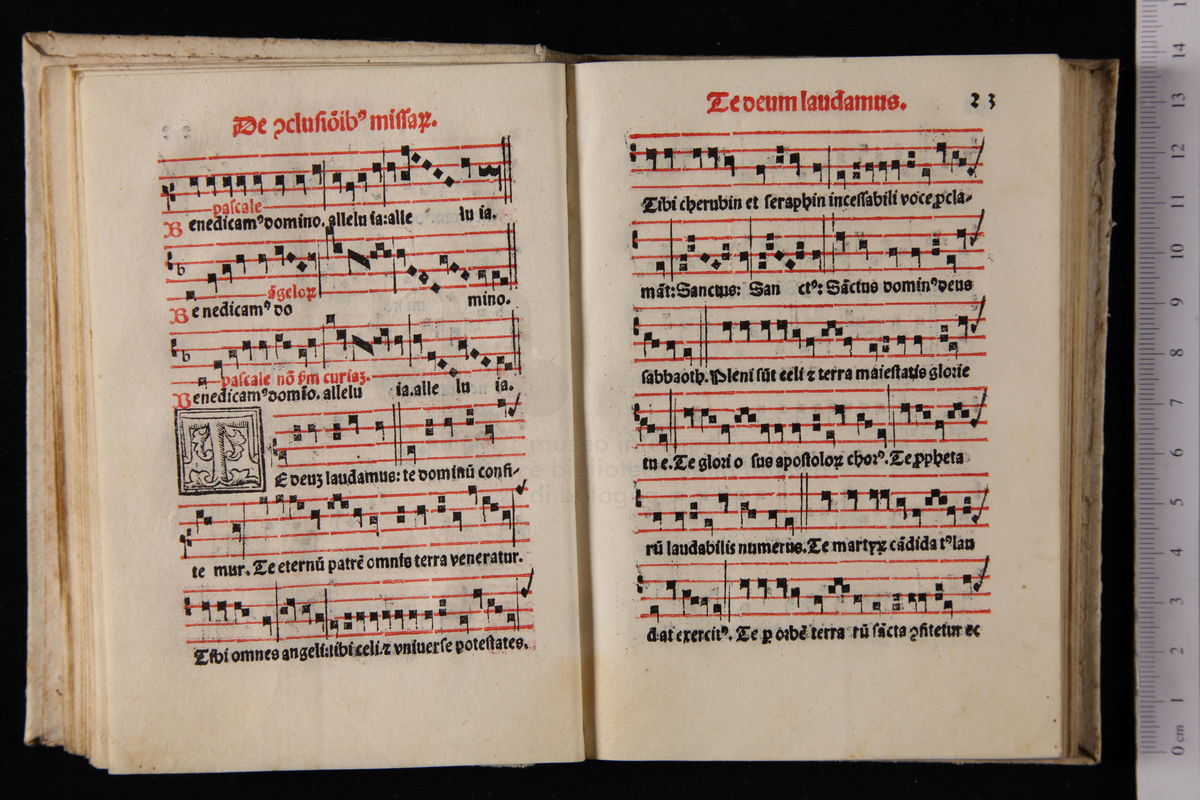 De ↄclusiõibꝰ missaꝝ.
pascale
Benedicamꝰ domino. allelu ia: alle lu ia.
ãgeloꝝ
Benedicamꝰ do mino.
pascale nõ ẜm curiaʒ.
Benedicamꝰ domio. allelu ia. alle lu ia.
TE deuʒ laudamus: te dominũ confi-
te mur. Te eternũ patrẽ omnis terra veneratur.
Tibi omnes angeli: tibi celi ⁊ vniuerse potestates.
Te deum laudamus. 23
Tibi cherubin et seraphin incessabili voce ꝓcla-
mãt: Sanctus: San ctꝰ: Sãctus dominꝰ deus
sabbaoth. Pleni sũt celi ⁊ terra maiestatis glorie
tu e. Te glori o sus apostoloꝝ chorꝰ. Te ꝓpheta
rũ laudabilis numerus. Te martyꝝ cãdida tꝰ lau
dat exercitꝰ. Te ꝑ orbẽ terra rũ sãcta ↄfitetur ec
museo in
e biblio
di bolog
0 cm 1 2 3 4 5 6 7 8 9 10 11 12 13 14